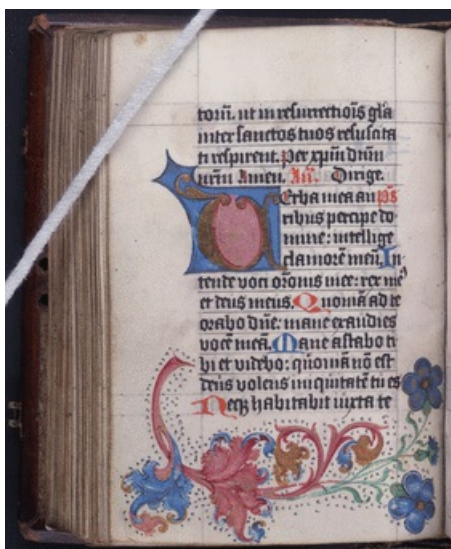 toru͞. ut in resurrectiōis gl͞a
inter sanctos tuos resuscita
ti respirent. Per xp͞m d͞nm
n͞rm Amen. An͞. Dirige.
Verba mea au ps͞
ribus percipe do
mine: intellige
clamorē meū, In
tende voci or͞onis mee: rex me⁹
et deus meus. Quoniā ad te
orabo d͞ne: mane exaudies
vocē meā. Mane astabo ti
bi et videbo: qm̄oniā nō est
deus volens iniquitatē tu es
Neqꝫ habitabit iuxta te